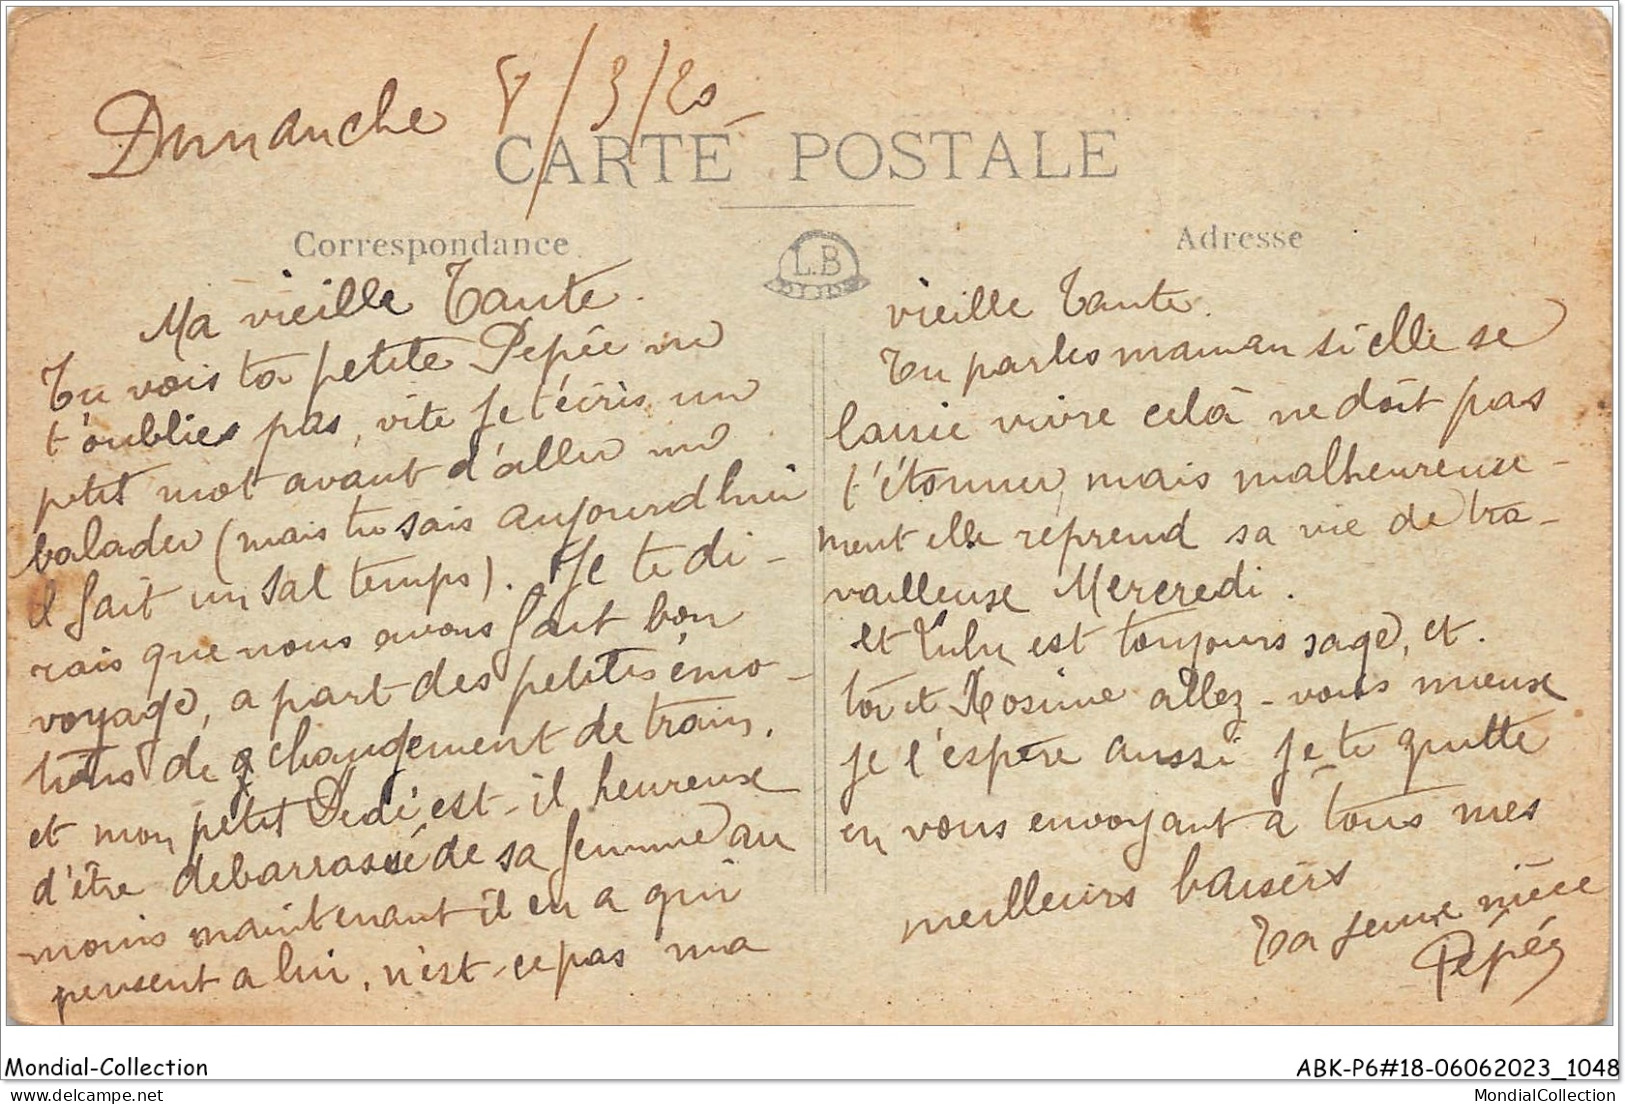 Dimanche 8/3/20
CARTE POSTALE
Correspondance
Adresse
L.B
Ma vieille Tante.
Tu vois ta petite Pépée ne
t'oublies pas, vite je t'écris un
petit mot avant d'aller me
balader (mais tu sais aujourd'hui
il fait un sal temps). Je te di-
rais que nous avons fait bon
voyage, a part des petites émo-
tions de changement de train,
et mon petit Dédé est-il heureuse
d'être debarrassé de sa femme au
moins maintenant il en a qui
pensent a lui, n'est-ce pas ma
vieille Tante.
Tu parles maman si elle se
laisse vivre celà ne doit pas
t'étonner, mais malheureuse-
ment elle reprend sa vie de tra-
vailleuse Mercredi.
et Lulu est toujours sage, et.
toi et Rosine allez-vous mieux
je l'espère aussi je te quitte
en vous envoyant a tous mes
meilleurs baisers
Ta nièce
Pépée
Mondial-Collection
ABK-P6#18-06062023_1048
www.delcampe.net
MondialCollection